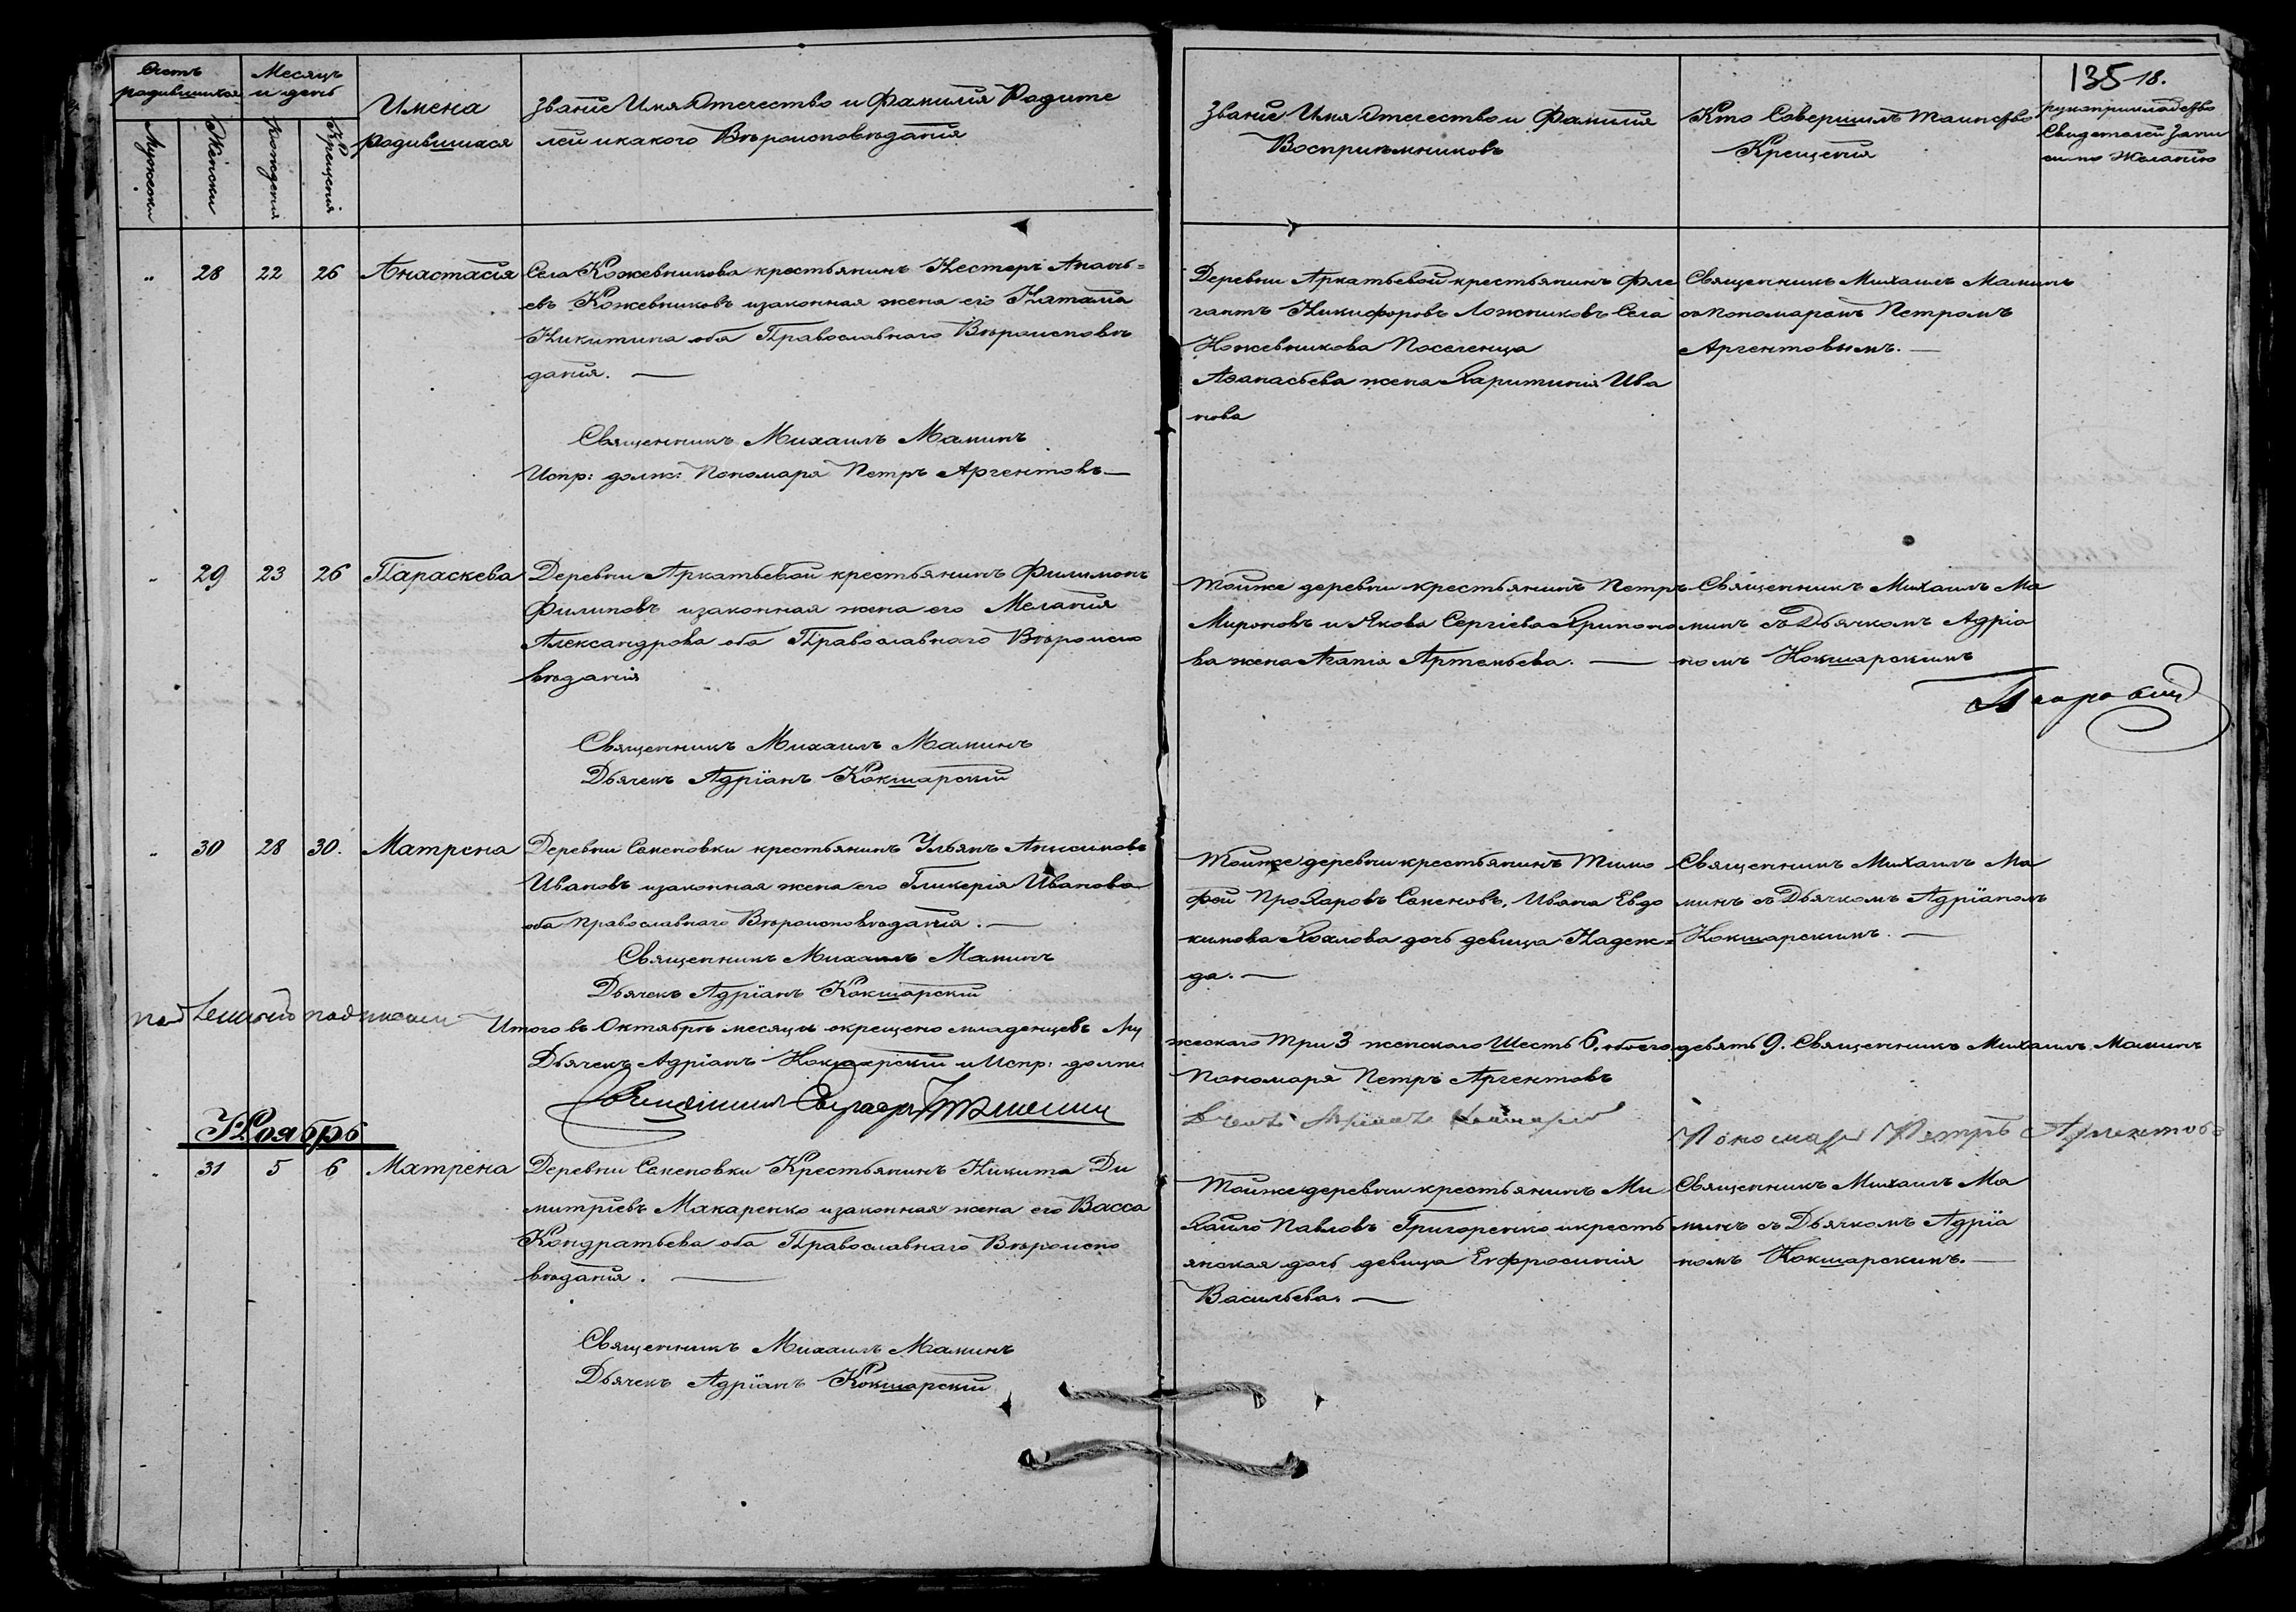 Счетъ родившихся
Месяцъ и день
Имена родившихся
Званіе Имя Отечество и Фамилія Родите
лей и какого Вѣроисповѣданія
Званіе Имя Отечество и Фамилія
Воспріемниковъ
Кто Совершилъ Таинство
Крещенія
135 18.
рукоприкладство
Свидетелей запи
си по Желанію
Мужески
Женски
рожденія
Крещенія
„ 28 22 26 Анастасія
Села Кожевникова крестьянинъ Нестеръ Анань=
евъ Кожевниковъ и законная жена его Наталія
Никитина оба Православнаго Вѣроисповѣ
данія. —
Священникъ Михаилъ Маминъ
Испр: долж: Пономаря Петръ Аргентовъ —
Деревни Аркатьевой крестьянинъ Фле
гантъ Никифоровъ Ложниковъ Села
Кожевникова Поселенца
Афанасьева жена Харитинія Ива
нова
Священникъ Михаилъ Маминъ
съ пономаремъ Петромъ
Аргентовымъ. —
„ 29 23 26 Параскева
Деревни Аркатьевой крестьянинъ Филимонъ
Филиповъ и законная жена его Меланія
Александрова оба Православнаго Вѣроиспо
вѣданія
Священникъ Михаилъ Маминъ
Дьячекъ Адріанъ Кокшарскій
Тойже деревни крестьянинъ Петръ
Мироновъ и Якова Сергіева
ва жена Агапія Артемьева. —
Священникъ Михаилъ Ма
минъ съ Дьячкомъ Адріа
номъ Кокшарскимъ
„ 30 28 30. Матрена
Деревни Саженовки крестьянинъ Ульянъ Анисимовъ
Ивановъ и законная жена его Гликерія Иванова
оба православнаго Вѣроисповѣданія. —
Священникъ Михаилъ Маминъ
Дьячекъ Адріанъ Кокшарскій
Тойже деревни крестьянинъ Тимо
фей Прохаровъ Саженовъ, Ивана Евдо
кимова Хохлова дочь девица Надеж=
да. —
Священникъ Михаилъ Ма
минъ съ Дьячкомъ Адріаномъ
Кокшарскимъ. —
Итого въ Октябрѣ месяцѣ окрещено младенцевъ Му
жескаго Три 3 женскаго Шесть 6. обоего девять 9. Священникъ Михаилъ Маминъ
Дьячекъ Адріанъ Кокшарскій и Испр: долж:
Пономаря Петръ Аргентовъ
Пономарь Петръ Аргентовъ
Ноябрь
„ 31 5 6 Матрена
Деревни Саженовки Крестьянинъ Никита Ди
митріевъ Макаренко и законная жена его Васса
Кондратьева оба Православнаго Вѣроиспо
вѣданія. —
Священникъ Михаилъ Маминъ
Дьячекъ Адріанъ Кокшарскій
Тойже деревни крестьянинъ Ми
хайло Павловъ Григоренко и кресть
янская дочь девица Евфросинія
Васильева. —
Священникъ Михаилъ Ма
минъ съ Дьячкомъ Адріа
номъ Кокшарскимъ. —